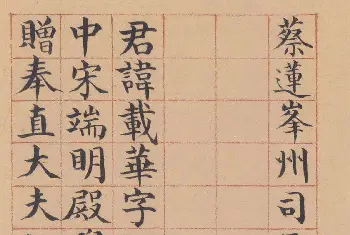 蔡蓮峯州司
君諱載華字
中宋端明殿
贈奉直大夫